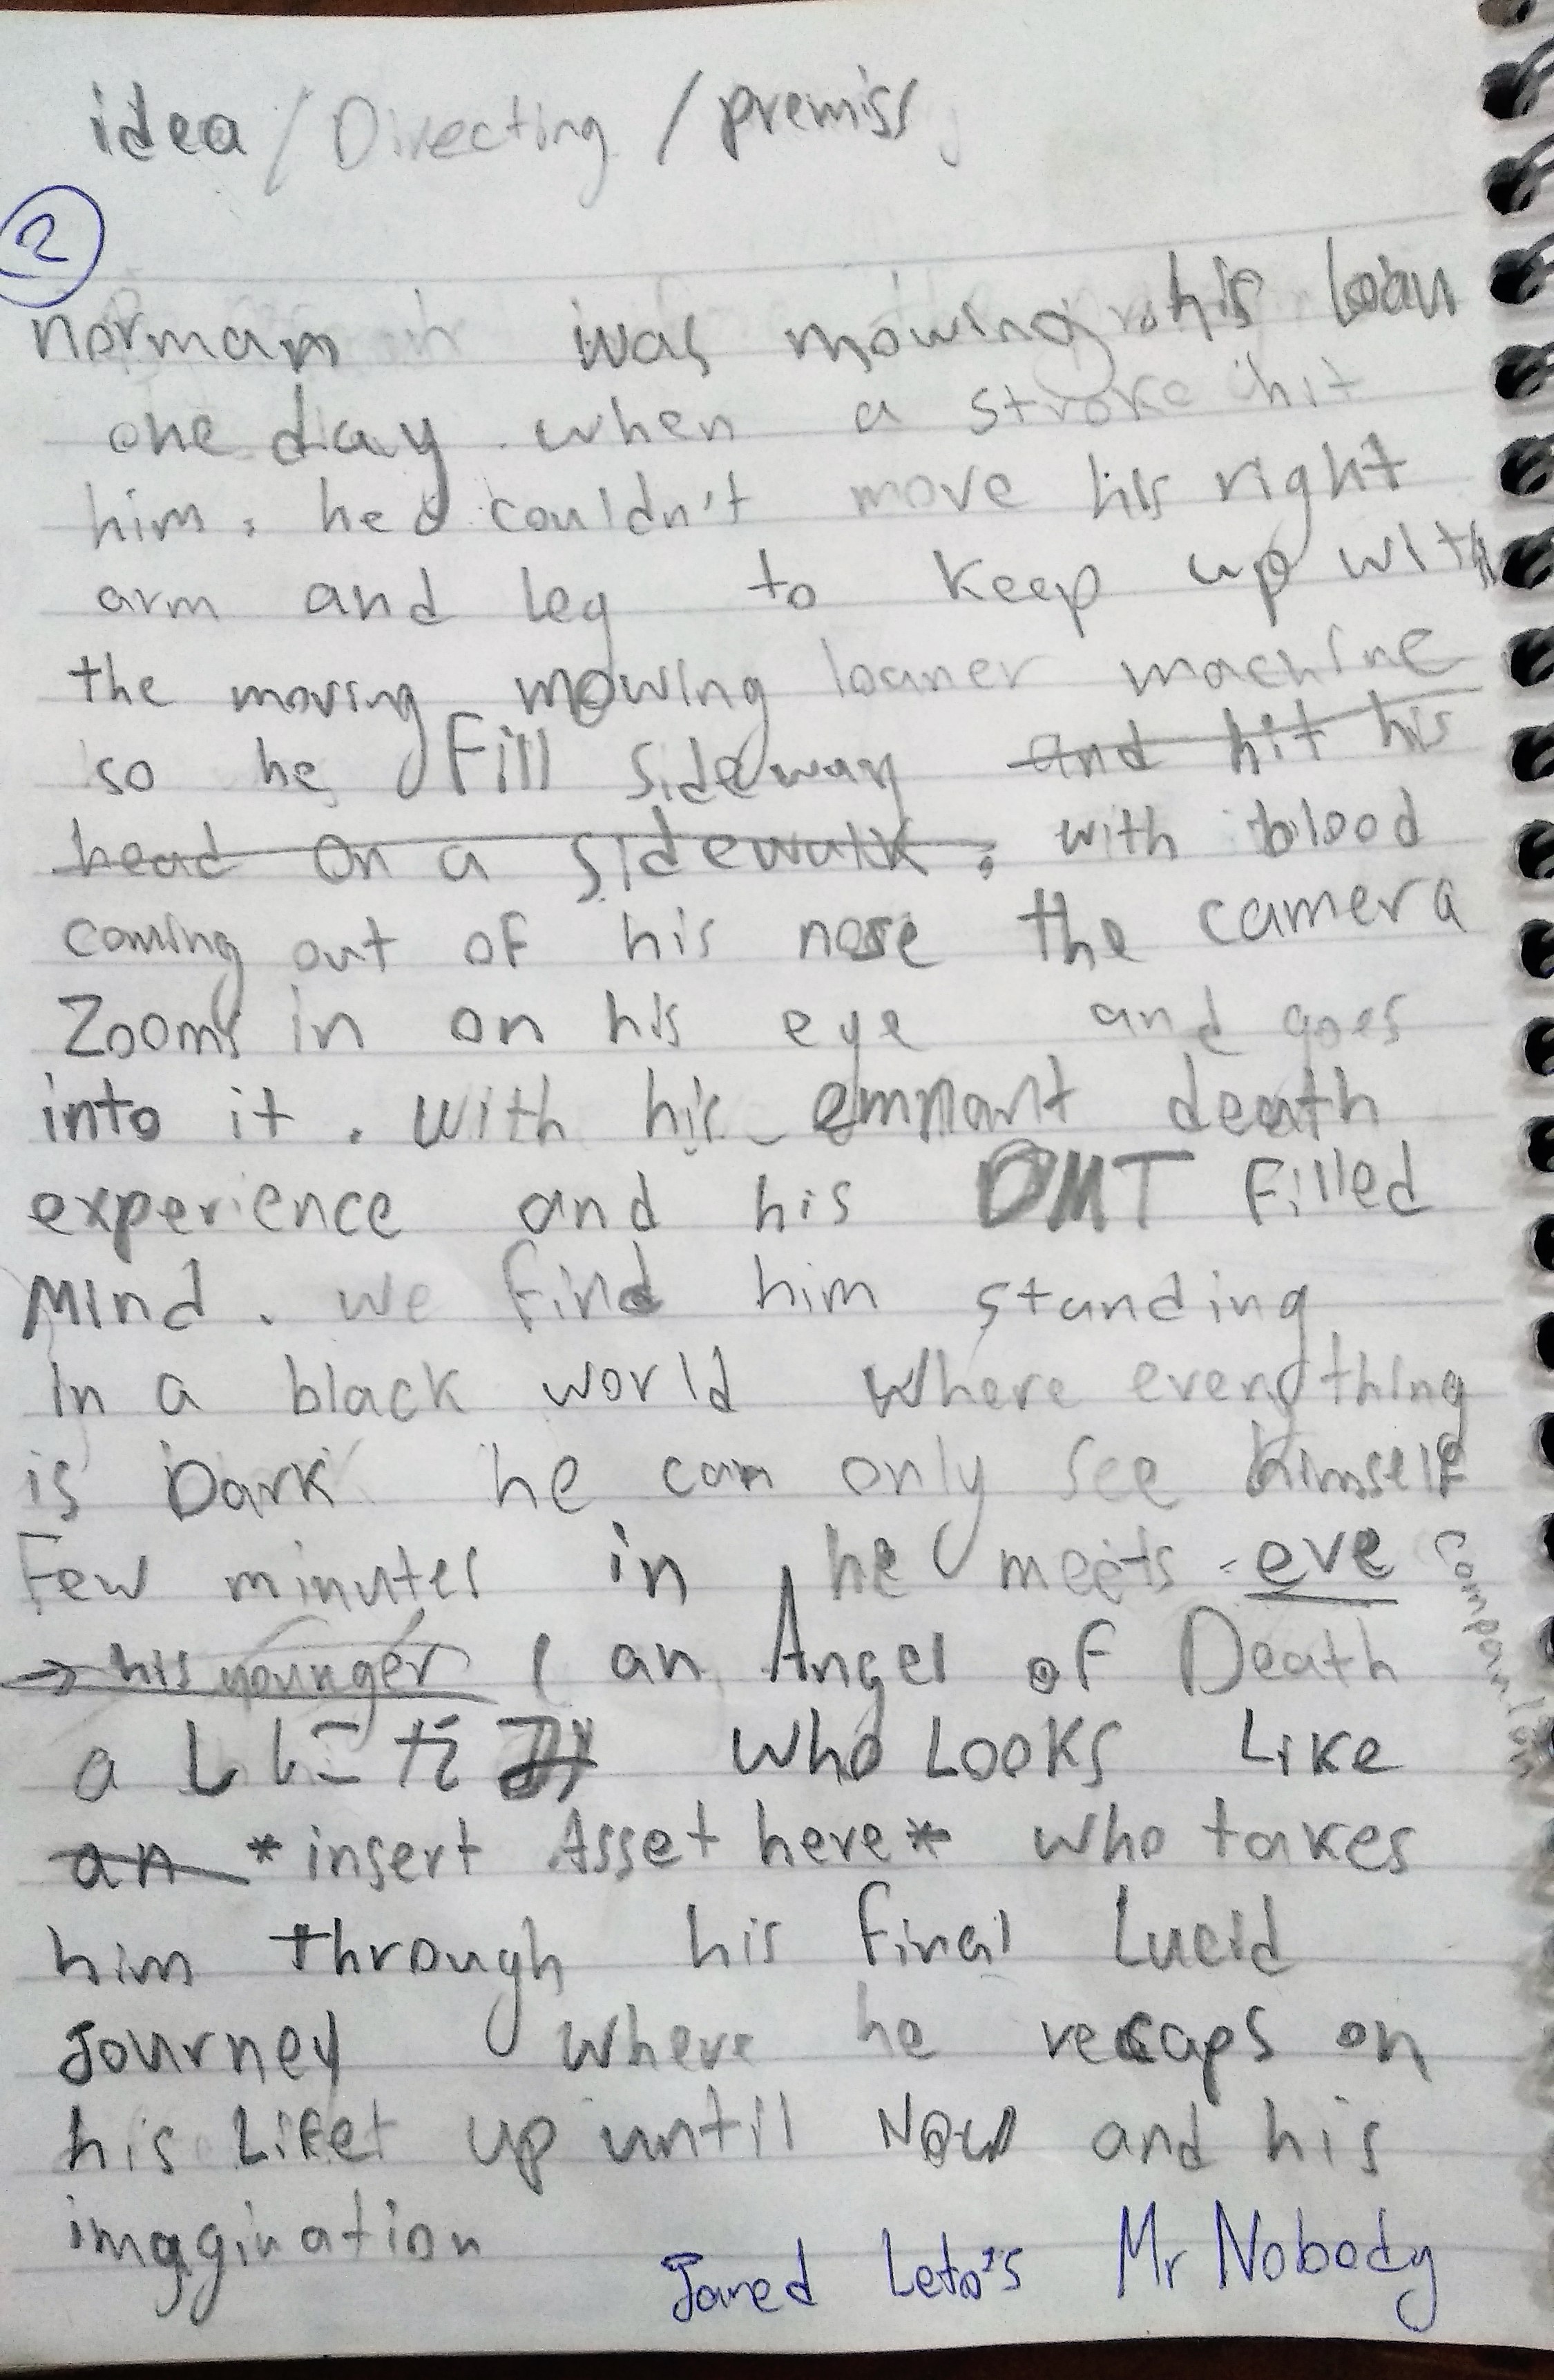 idea / Directing / premiss
2
normam was mowing his loan
one day when a stroke hit
him. he couldn't move his right
arm and leg to keep up with
the moving mowing loaner machine
so he Fill sideway and hit his
head on a sidewalk. with blood
coming out of his nose the camera
Zooms in on his eye and goes
into it. with his emnant death
experience and his DMT Filled
Mind. we find him standing
in a black world where everything
is Dark he can only see himself
Few minutes in he meets eve
companion
→ his younger ( an Angel of Death
a who Looks Like
an *insert Asset here* who takes
him through his final Lucid
Journey where he recaps on
his Life up until Now and his
imagination
Jared Leto's Mr Nobody